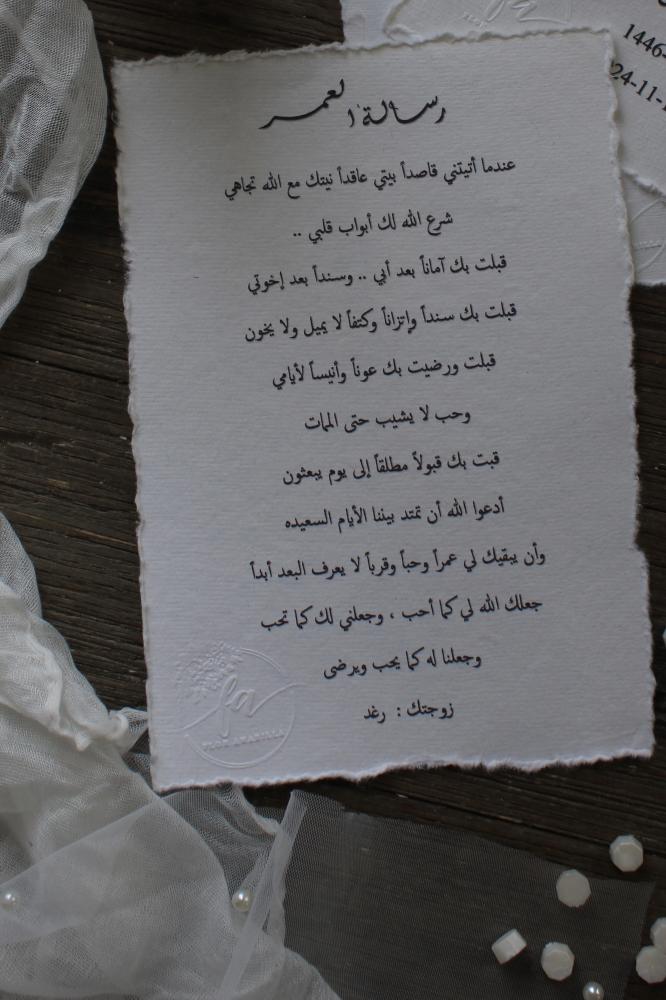 رسالة العمر
عندما أتيتني قاصداً بيتي عاقداً نيتك مع الله تجاهي
شرع الله لك أبواب قلبي ..
قبلت بك آماناً بعد أبي .. وسنداً بعد إخوتي
قبلت بك سنداً وإتزاناً وكتفاً لا يميل ولا يخون
قبلت ورضيت بك عوناً وأنيساً لأيامي
وحب لا يشيب حتى الممات
قبت بك قبولاً مطلقاً إلى يوم يبعثون
أدعوا الله أن تمتد بيننا الأيام السعيده
وأن يبقيك لي عمراً وحباً وقرباً لا يعرف البعد أبداً
جعلك الله لي كما أحب ، وجعلني لك كما تحب
وجعلنا له كما يحب ويرضى
زوجتك : رغد
fa
1446-
24-11-